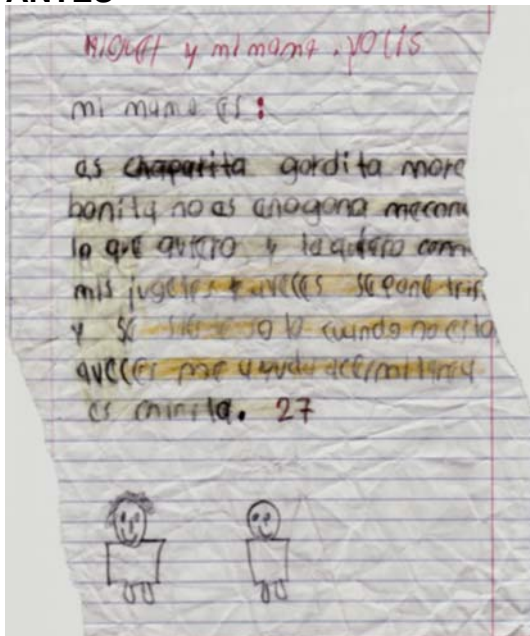 ANTES
MIGUEL y mi mama . YOLIS
mi mama es :
as chaparita gordita more
bonita no as anogona mecom
lo que quiero y la quiero com
mis jugetes aveces se pone tris
y se sola cuando no esta
aveces me ayuda
es chinita. 27